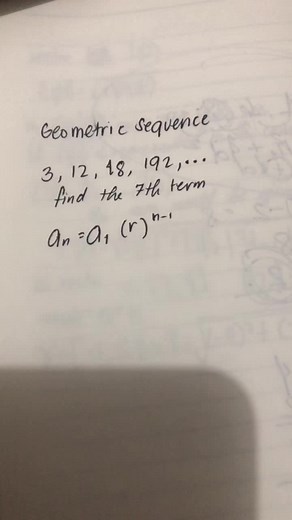 Geometric Sequence
3, 12, 48, 192,...
find the 7th term
an = a1 (r)^n-1